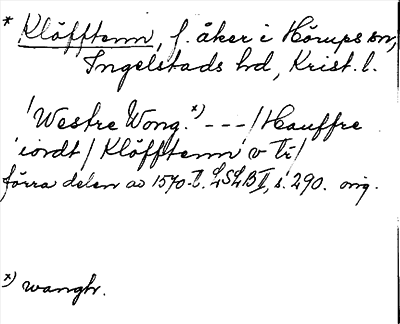 * Klöfftenn, f. åker i Hörups sn,
Ingelstads hd, Krist. l.
/Westre Wong. x) - - - / Hauffre
iordt / Klöfftenn v Tr/
förra delen av 1570-t. LSLB II, s. 290. orig.
x) wangh.